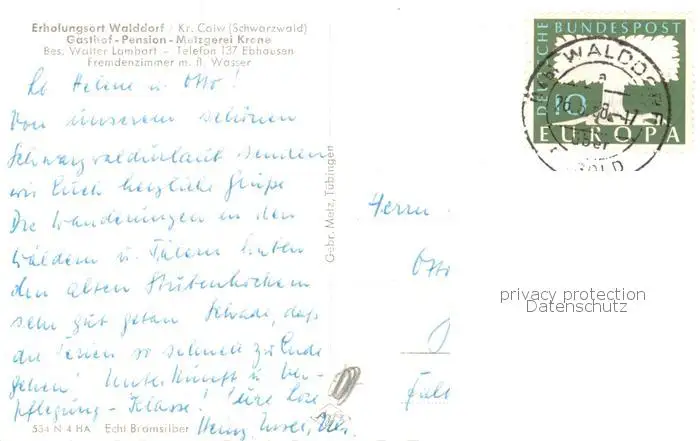 Erholungsort Walddorf / Kr. Calw (Schwarzwald)
Gasthof - Pension - Metzgerei Krone
Bes. Walter Lambart - Telefon 137 Ebhausen
Fremdenzimmer m. fl. Wasser
Lb Helene u. Otto!
Von unserem schönen
Schwarzwaldurlaub senden
wir Euch herzliche Grüße
Die Wanderungen in den
Wäldern u. Tälern haben
den alten Stubenhockern
sehr gut getan Schade, daß
die Ferien so schnell zu Ende
gehen! Unterkunft u. Ver-
pflegung - Klasse! Eure
Heinz
534 N 4 HA Echt Bromsilber
Gebr. Metz, Tübingen
Herrn
Otto
DEUTSCHE BUNDESPOST
10
EUROPA
WALDDORF
über
privacy protection
Datenschutz